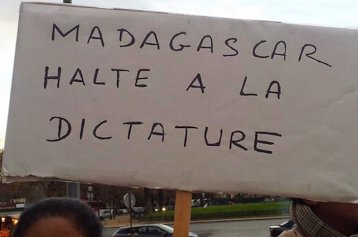 MADAGASCAR
HALTE A LA
DICTATURE